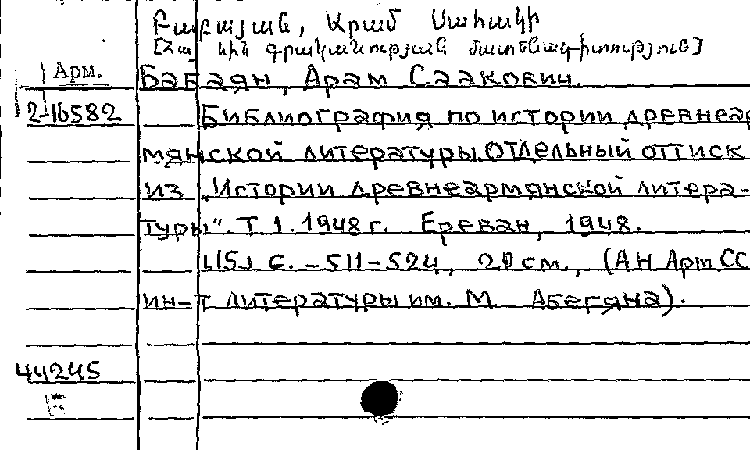 Բաբայան, Արամ Սահակի
[Հայ հին գրականության մատենագիտություն]
Арм.
Бабаян, Арам Саакович.
2-16582
Библиография по истории древнеар
мянской литературы. Отдельный оттиск
из „Истории древнеармянской литера-
туры“. Т. 1. 1948 г. Ереван, 1948.
[15] с. – 511–524, 20 см., (АН Арм СС
ин-т литературы им. М. Абегяна).
44245